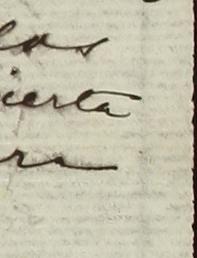 los
ierta
ra